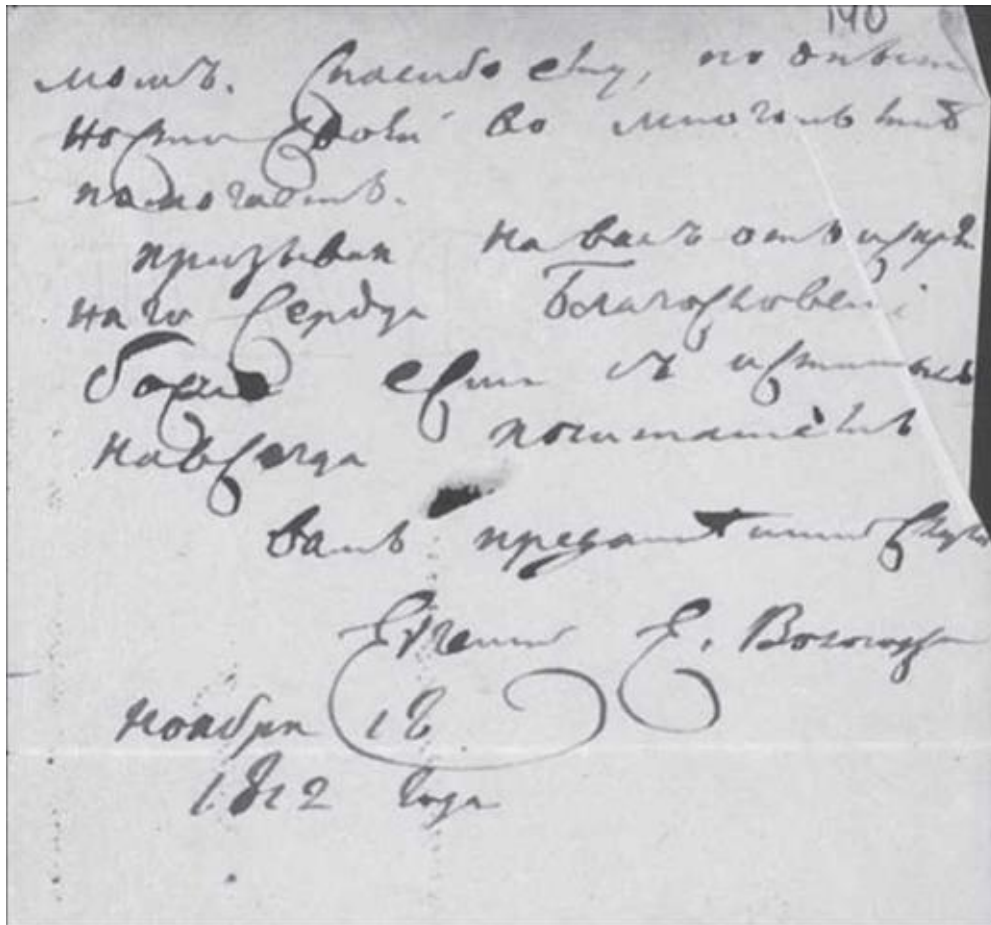 140
момъ. Спасибо ему, по опыт
ности своей во многомъ мнѣ
помогаетъ.
призывая на васъ отъ искрен
наго сердца Благословеніе
божіе есмь съ истиннымъ
навсегда почитаніемъ
вамъ преданнѣйшій слуга
Евгеній Е. Вологод
ноября 16
1812 года